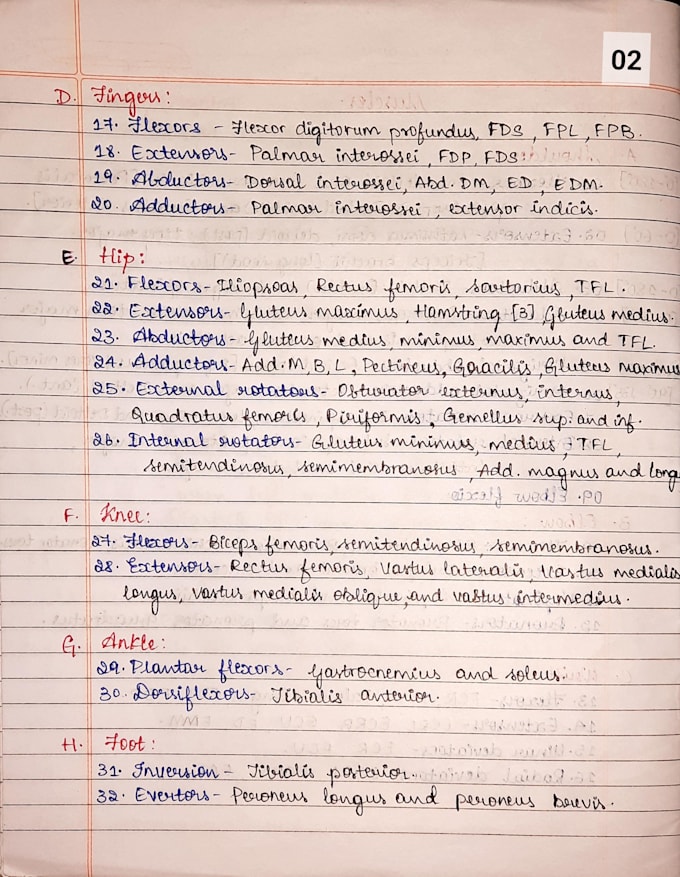 02
D. Fingers:
17. Flexors - Flexor digitorum profundus, FDS, FPL, FPB.
18. Extensors- Palmar interossei, FDP, FDS.
19. Abductors- Dorsal interossei, Abd. DM, ED, EDM.
20. Adductors- Palmar interossei, extensor indicis.
E. Hip:
21. Flexors- Iliopsoas, Rectus femoris, sartorius, TFL.
22. Extensors- Gluteus maximus, Hamstring [3], Gluteus medius.
23. Abductors- Gluteus medius, minimus, maximus and TFL.
24. Adductors- Add. M, B, L, Pectineus, Gracilis, Gluteus maximus
25. External rotators- Obturator externus, internus,
Quadratus femoris, Piriformis, Gemellus sup. and inf.
26. Internal rotators- Gluteus minimus, medius, TFL,
semitendinosus, semimembranosus, Add. magnus and long
F. Knee:
27. Flexors- Biceps femoris, semitendinosus, semimembranosus.
28. Extensors- Rectus femoris, Vastus lateralis, Vastus medialis
longus, vastus medialis oblique, and vastus intermedius.
G. Ankle:
29. Plantar flexors- Gastrocnemius and soleus.
30. Dorsiflexors- Tibialis anterior.
H. Foot:
31. Inversion- Tibialis posterior.
32. Evertors- Peroneus longus and peroneus brevis.